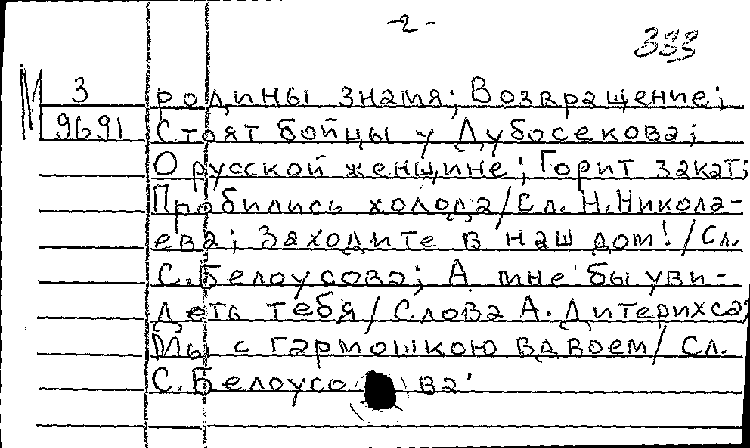 -2-
333
М 3 9691
родины знамя; Возвращение;
Стоят бойцы у Дубосекова;
О русской женщине; Горит закат;
Пробились холода/Сл. Н.Никола-
ева; Заходите в наш дом!/Сл.
С.Белоусова; А мне бы уви-
деть тебя/Слова А.Дитерихса;
Мы с гармошкою вдвоем/Сл.
С.Белоусова.